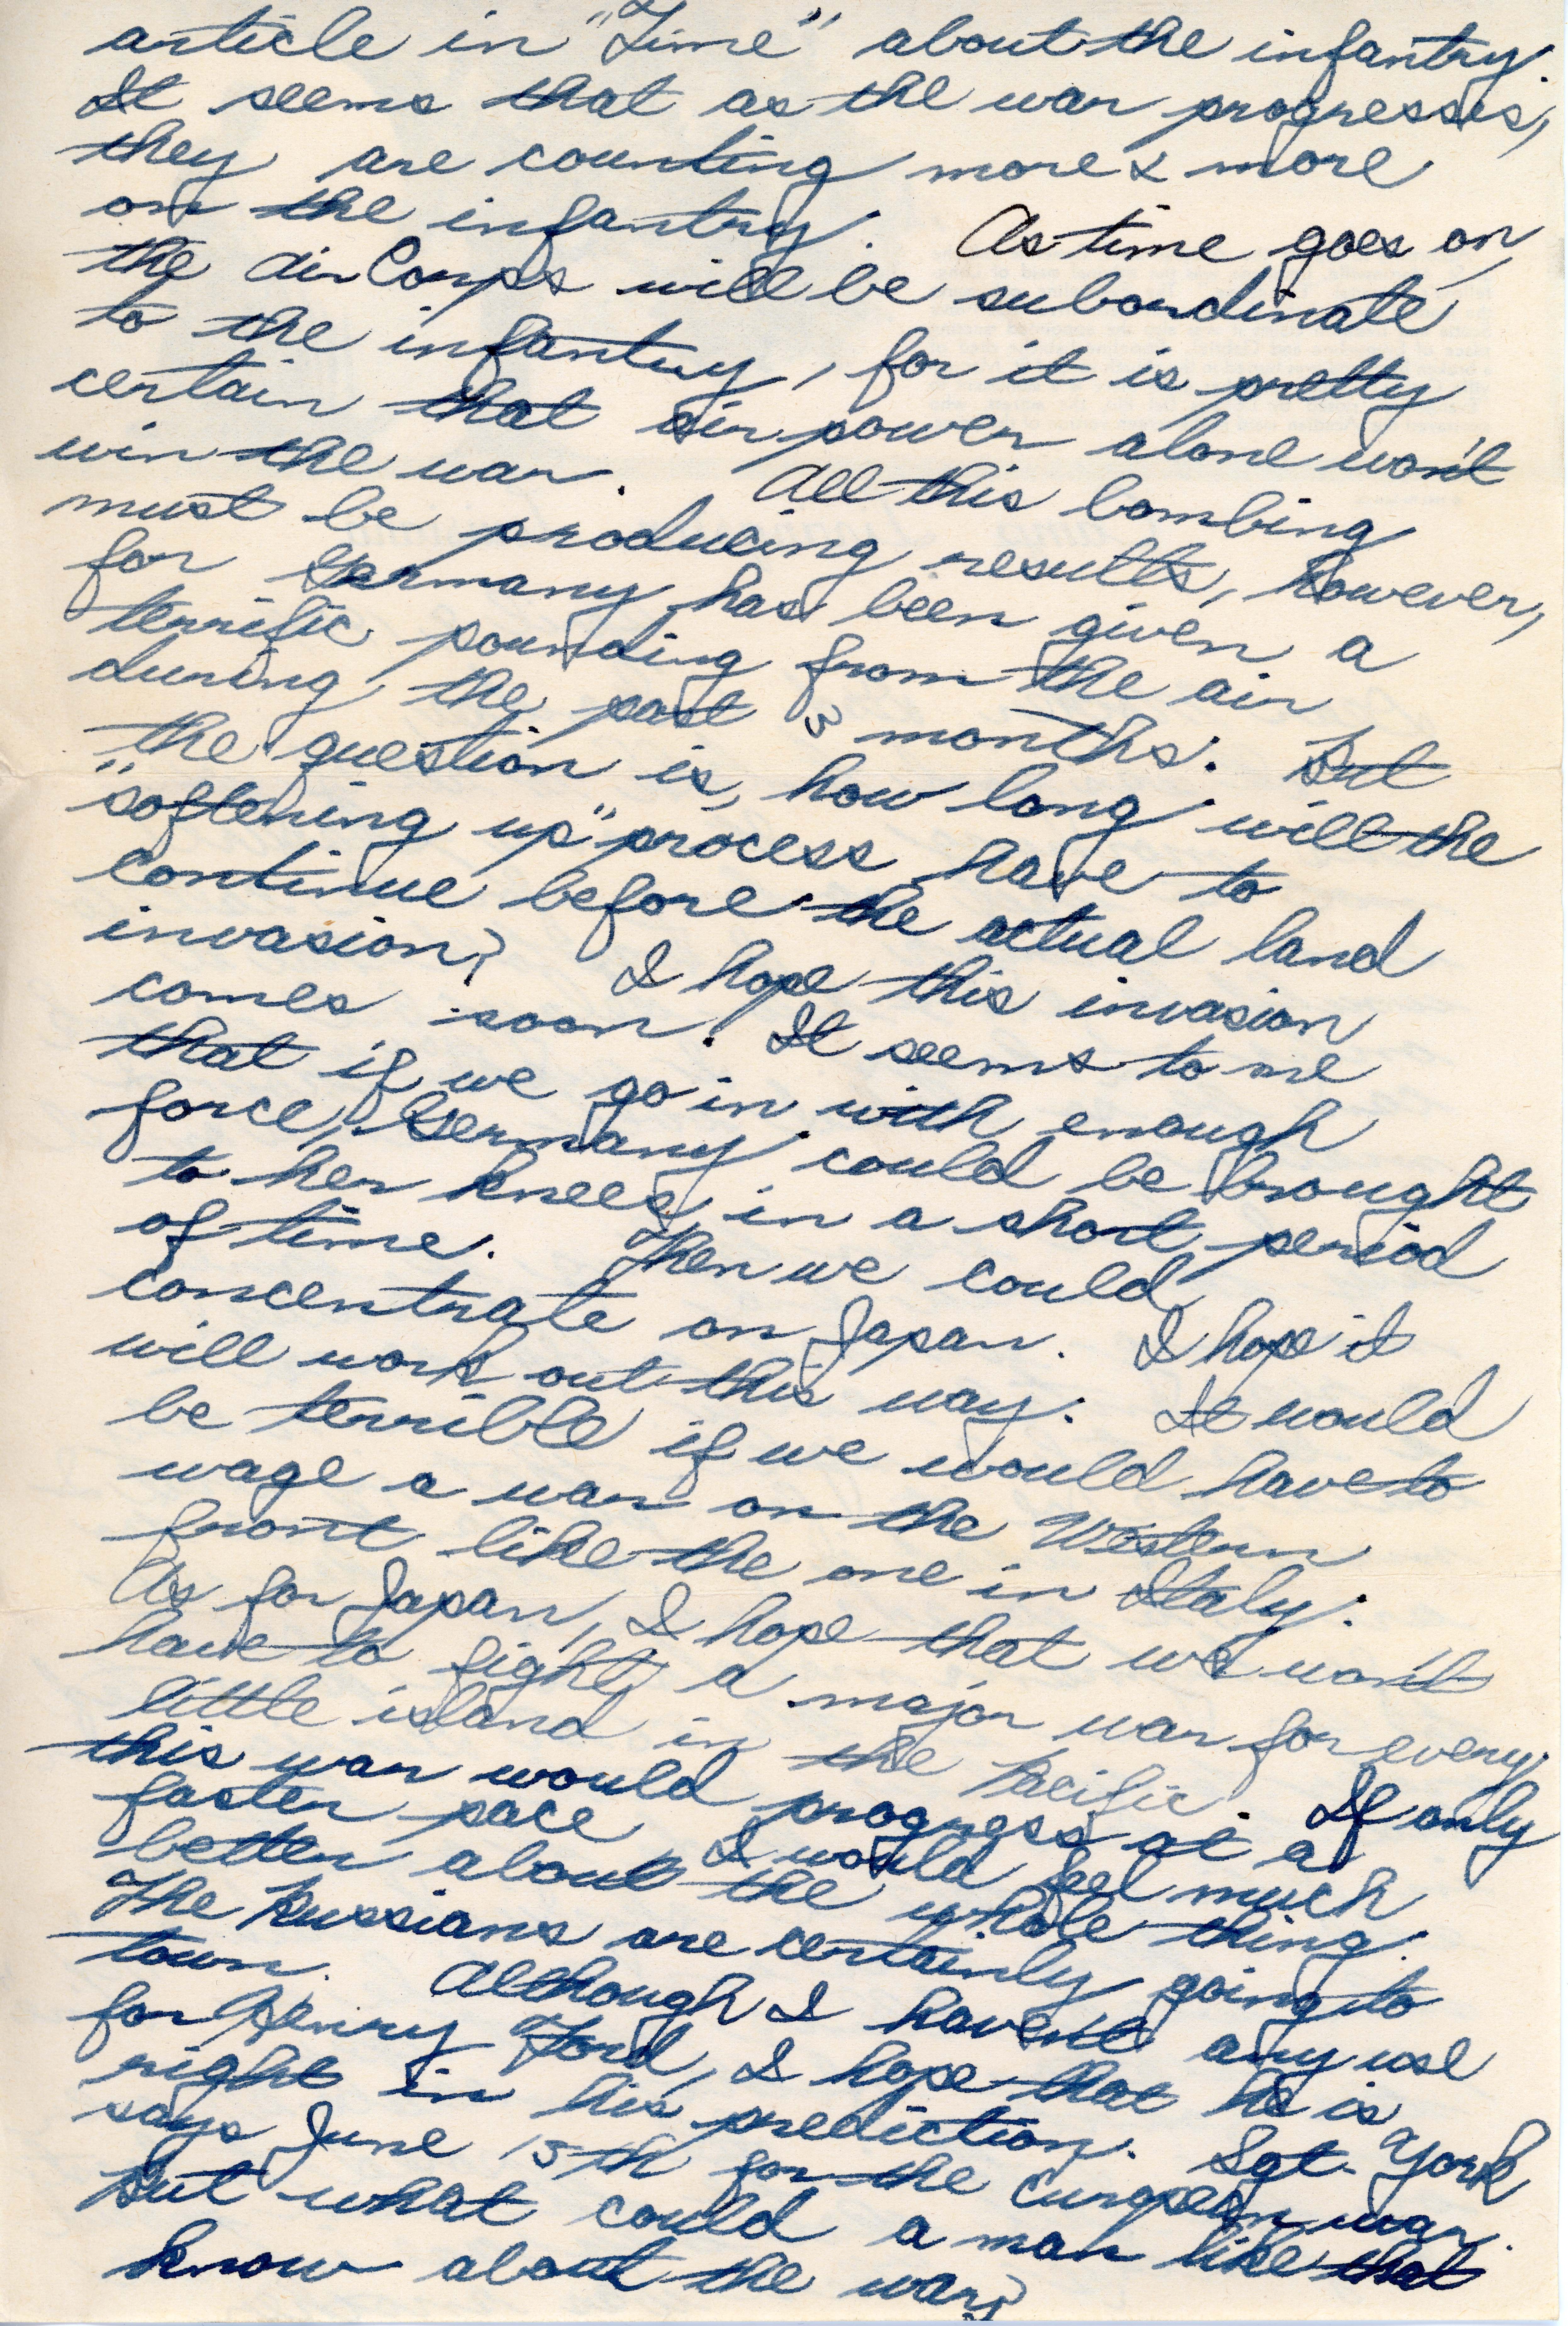 article in "Time" about the infantry.
It seems that as the war progresses,
they are counting more & more
on the infantry. As time goes on,
the Air Corps will be subordinate
to the infantry, for it is pretty
certain that air power alone won't
win the war. All this bombing
must be producing results, however,
for Germany has been given a
terrific pounding from the air
during the past 3 months. But
the question is, how long will the
"softening up" process have to
continue before the actual land
invasion? I hope this invasion
comes soon. It seems to me
that if we go in with enough
force, Germany could be brought
to her knees in a short period
of time. Then we could
concentrate on Japan. I hope it
will work out this way. It would
be terrible if we would have to
wage a war on the Western
front like the one in Italy.
As for Japan, I hope that we won't
have to fight a major war for every
little island in the Pacific. If only
this war would progress at a
faster pace I would feel much
better about the whole thing.
The Russians are certainly going to
town. Although I haven't any use
for Henry Ford, I hope that he is
right in his prediction. Sgt. York
says June 15th for the European war.
But what could a man like that
know about the war?